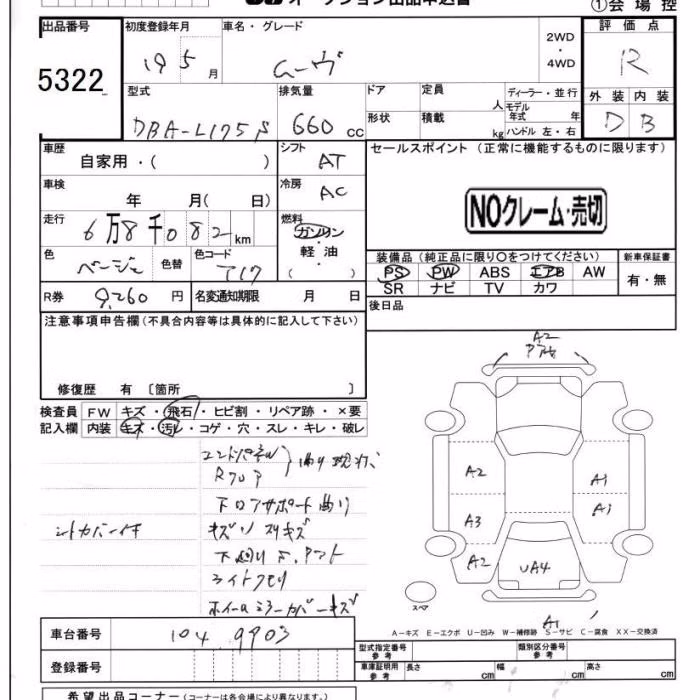 オークション出品申込書
①会場控
出品番号 初度登録年月 車名・グレード 2WD ・ 4WD 評価点
5322 19 5 月 ムーヴ R
型式 排気量 ドア 定員 人 ディーラー・並行 外装 内装
DBA-L175S 660 cc 形状 積載 kg モデル年式 年 ハンドル 左・右 D B
車歴 自家用・( ) シフト AT セールスポイント (正常に機能するものに限ります)
車検 年 月( 日) 冷房 AC
NOクレーム・売切
走行 6万8千082km 燃料 ガソリン・軽油 ( )
色 ベージュ 色替 色コード T17
装備品 (純正品に限り○をつけてください) 新車保証書
PS PW ABS エアB AW 有・無
SR ナビ TV カワ
R券 9,260円 名変通知期限 月 日 後日品
注意事項申告欄 (不具合内容等は具体的に記入して下さい)
修復歴 有 〔箇所 〕
検査員 FW キズ・飛石・ヒビ割・リペア跡・×要
記入欄 内装 キズ・汚レ・コゲ・穴・スレ・キレ・破レ
エンドパネル
Rフロア
下回りサポート曲り
シートカバー付 キズソリキズ
ライトクモリ
ホイールミラーカバーキズ
A2
A2 A1
A3 A1
A2 UA4
スペア
A1
A-キズ E-エクボ U-凹み W-補修跡 S-サビ C-腐食 XX-交換済
車台番号 104 9903
登録番号
型式指定番号 参考 類別区分番号 参考
車庫証明用 参考 長さ cm 幅 cm 高さ cm
希望出品コーナー (コーナーは各会場により異なります。)